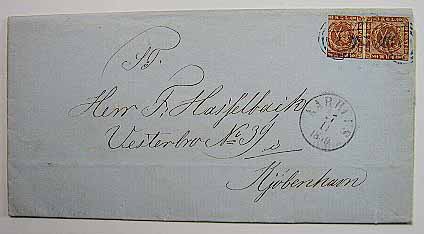 S. T.
Herr F. Hasselbalch
Vesterbro No 39
Kjöbenhavn
AARHUUS